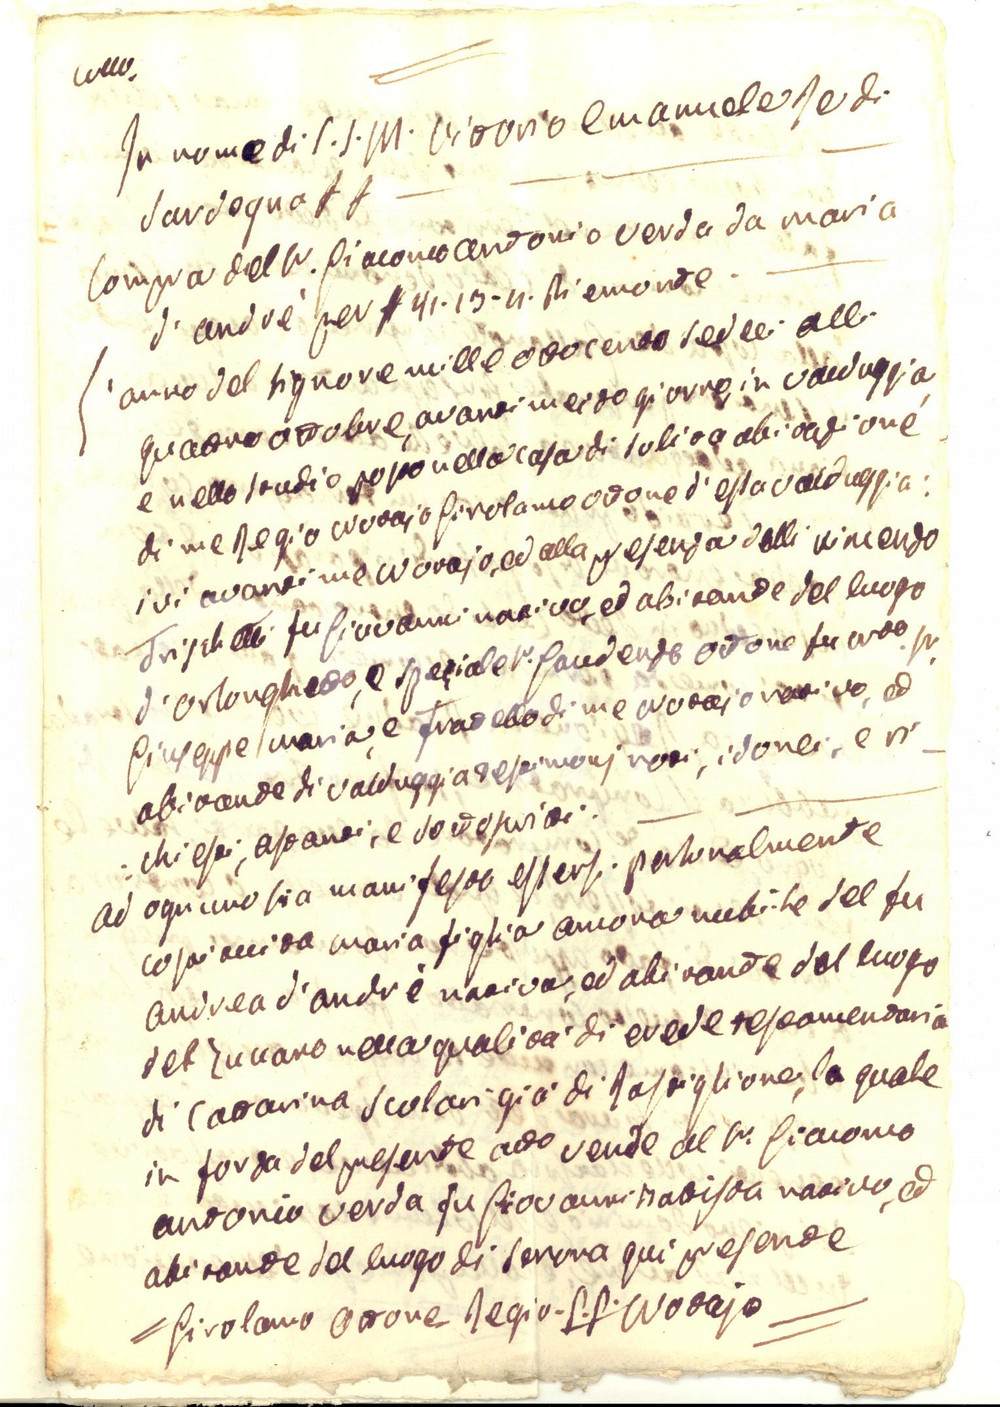 In nome di S. S. M. Vittorio Emanuele Re di
Sardegna
Compra del Sr. Giacomo Antonio Verda da Maria
d'Andrè per 41.13.4. Piemonte.
L'anno del Signore mille ottocento sedeci alli
quattro ottobre, avanti mezzo giorno, in Valduggia,
e nello studio posto nella casa di solita abitazione
di me Regio Notajo Girolamo Ottone d'essa Valduggia:
ivi avanti me Notajo, ed alla presenza delli Vincenzo
fu Giovanni nativo, ed abitante del luogo
d'Orlonghetto, e speziale Sr. Gaudenzo Ottone fu Sr.
Giuseppe Maria, e Fratello di me Notajo nativo, ed
abitante di Valduggia testimonj noti, idonei, e ri-
chiesti, astanti, e sottoscritti.
Ad ognuno sia manifesto essersi personalmente
costituita Maria figlia ancora nubile del fu
Andrea d'Andrè nativa, ed abitante del luogo
del Zuccaro nella qualità di erede testamentaria
di Cattarina Scolari già di Rastiglione, la quale
in forza del presente atto vende al Sr. Giacomo
Antonio Verda fu Giovanni Batista nativo, ed
abitante del luogo di qui presente
Girolamo Ottone Regio Notajo